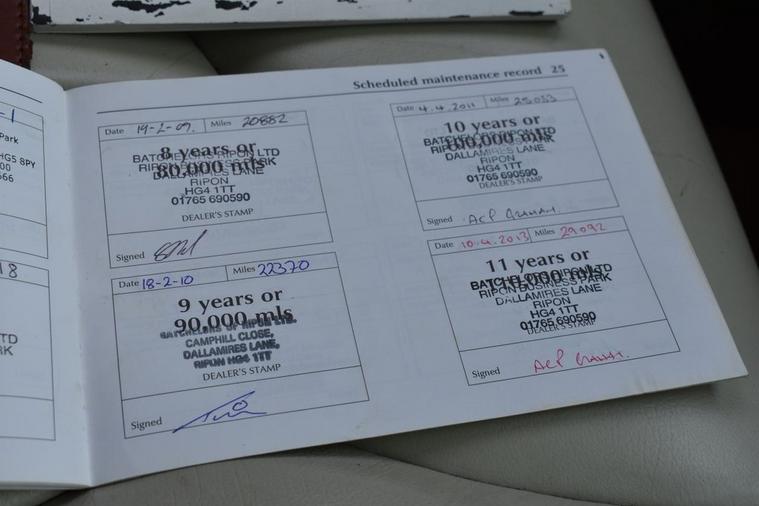 -1
Park
HG5 8PY
00
566
18
TD
RK
Scheduled maintenance record 25
Date 19-2-09. Miles 20882
8 years or
80,000 mls
BATCHELORS RIPON LTD
RIPON BUSINESS PARK
DALLAMIRES LANE
RIPON
HG4 1TT
01765 690590
DEALER'S STAMP
Signed
Date 18-2-10 Miles 22370
9 years or
90,000 mls
BATCHELORS OF RIPON LTD.
CAMPHILL CLOSE,
DALLAMIRES LANE,
RIPON HG4 1TT
DEALER'S STAMP
Signed
Date 4.4.2011 Miles 25033
10 years or
100,000 mls
BATCHELORS RIPON LTD
RIPON BUSINESS PARK
DALLAMIRES LANE
RIPON
HG4 1TT
01765 690590
DEALER'S STAMP
Signed
Date 10.4.2013 Miles 29092
11 years or
110,000 mls
BATCHELORS RIPON LTD
RIPON BUSINESS PARK
DALLAMIRES LANE
RIPON
HG4 1TT
01765 690590
DEALER'S STAMP
Signed